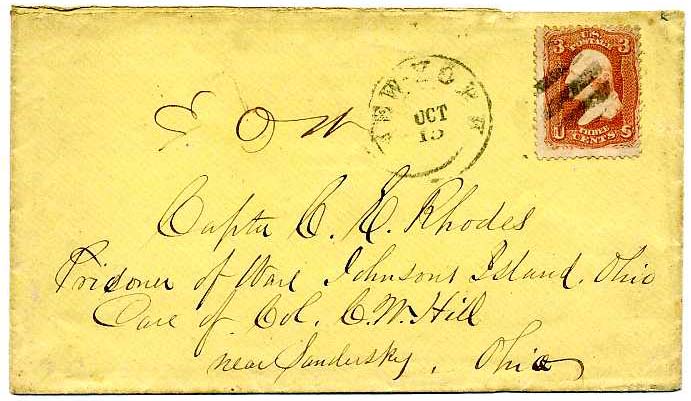 3 U.S. 3
POSTAGE
U THREE S
CENTS
NEW-YORK
OCT
15
E O W
Captn C. E. Rhodes
Prisoner of Ware Johnsons Island, Ohio
Care of Col. C. W. Hill
near Sandersky, Ohio